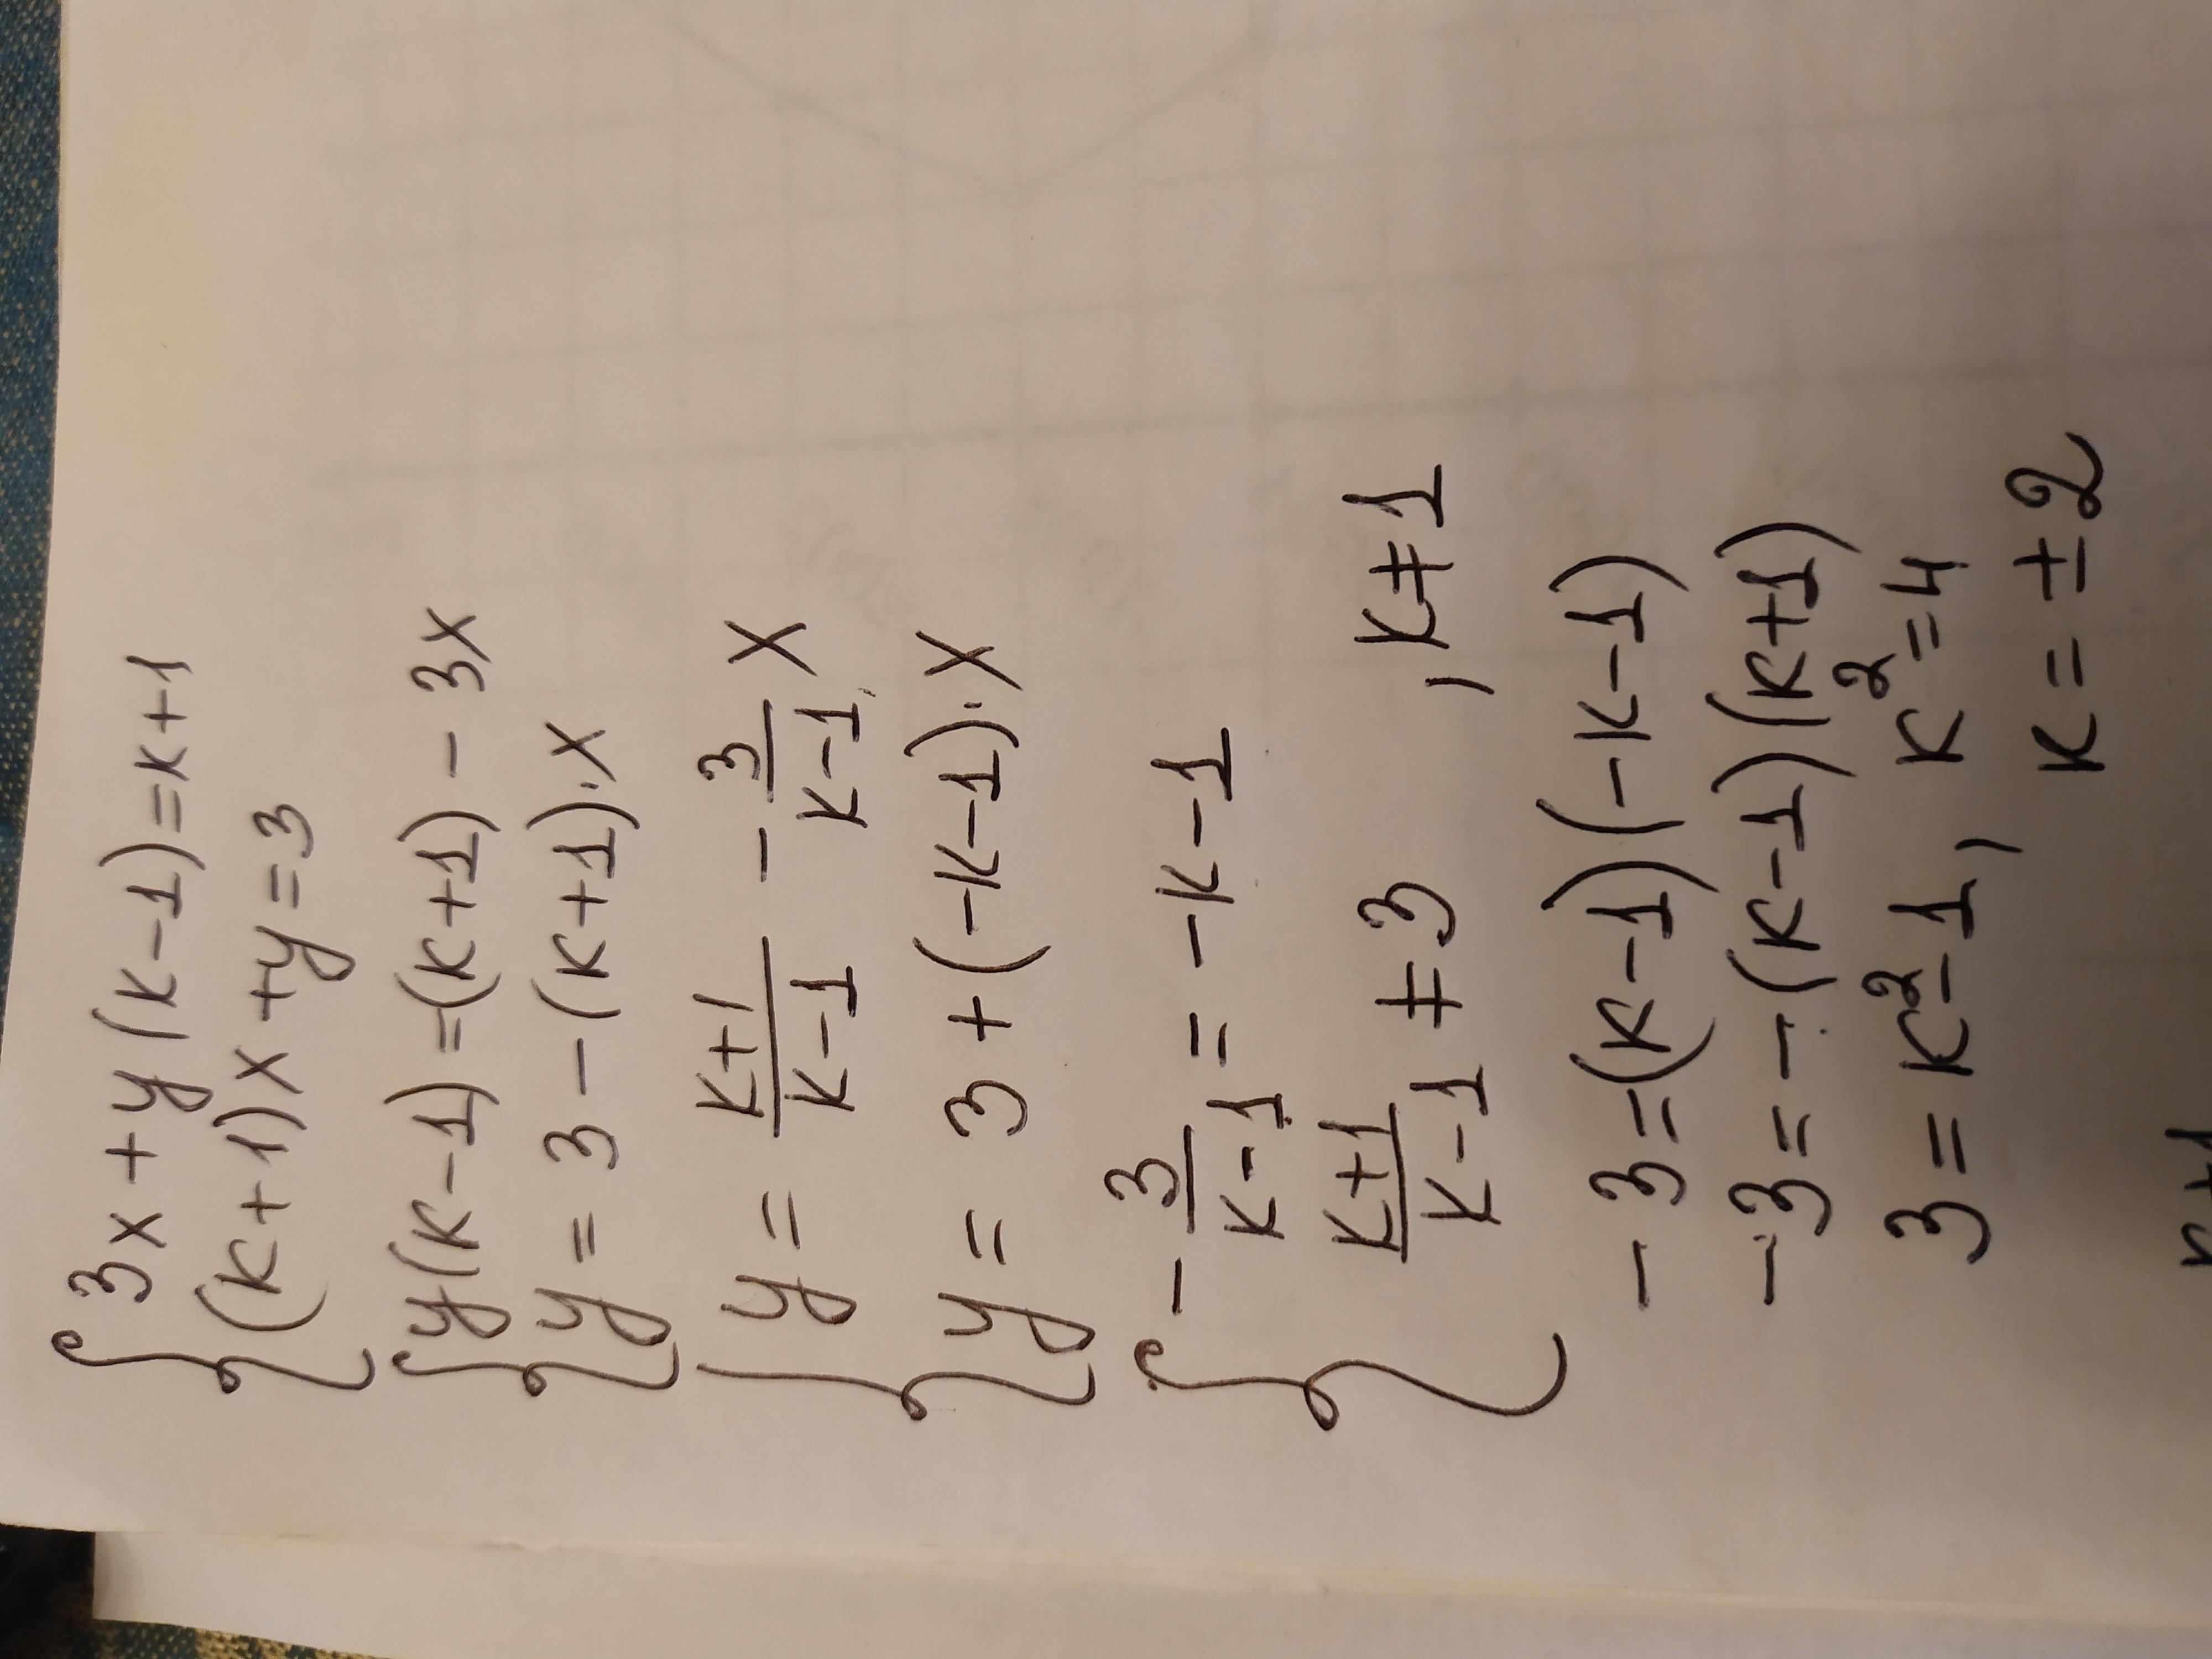 3x + y(k-1) = k+1
(k+1)x + y = 3
y(k-1) = (k+1) - 3x
y = 3 - (k+1)·x
y = \frac{k+1}{k-1} - \frac{3}{k-1} x
y = 3 + (-k-1)·x
-\frac{3}{k-1} = -k-1
\frac{k+1}{k-1} ≠ 3 , k ≠ 1
-3 = (k-1)(-k-1)
-3 = -(k-1)(k+1)
3 = k²-1, k² = 4
k = ±2